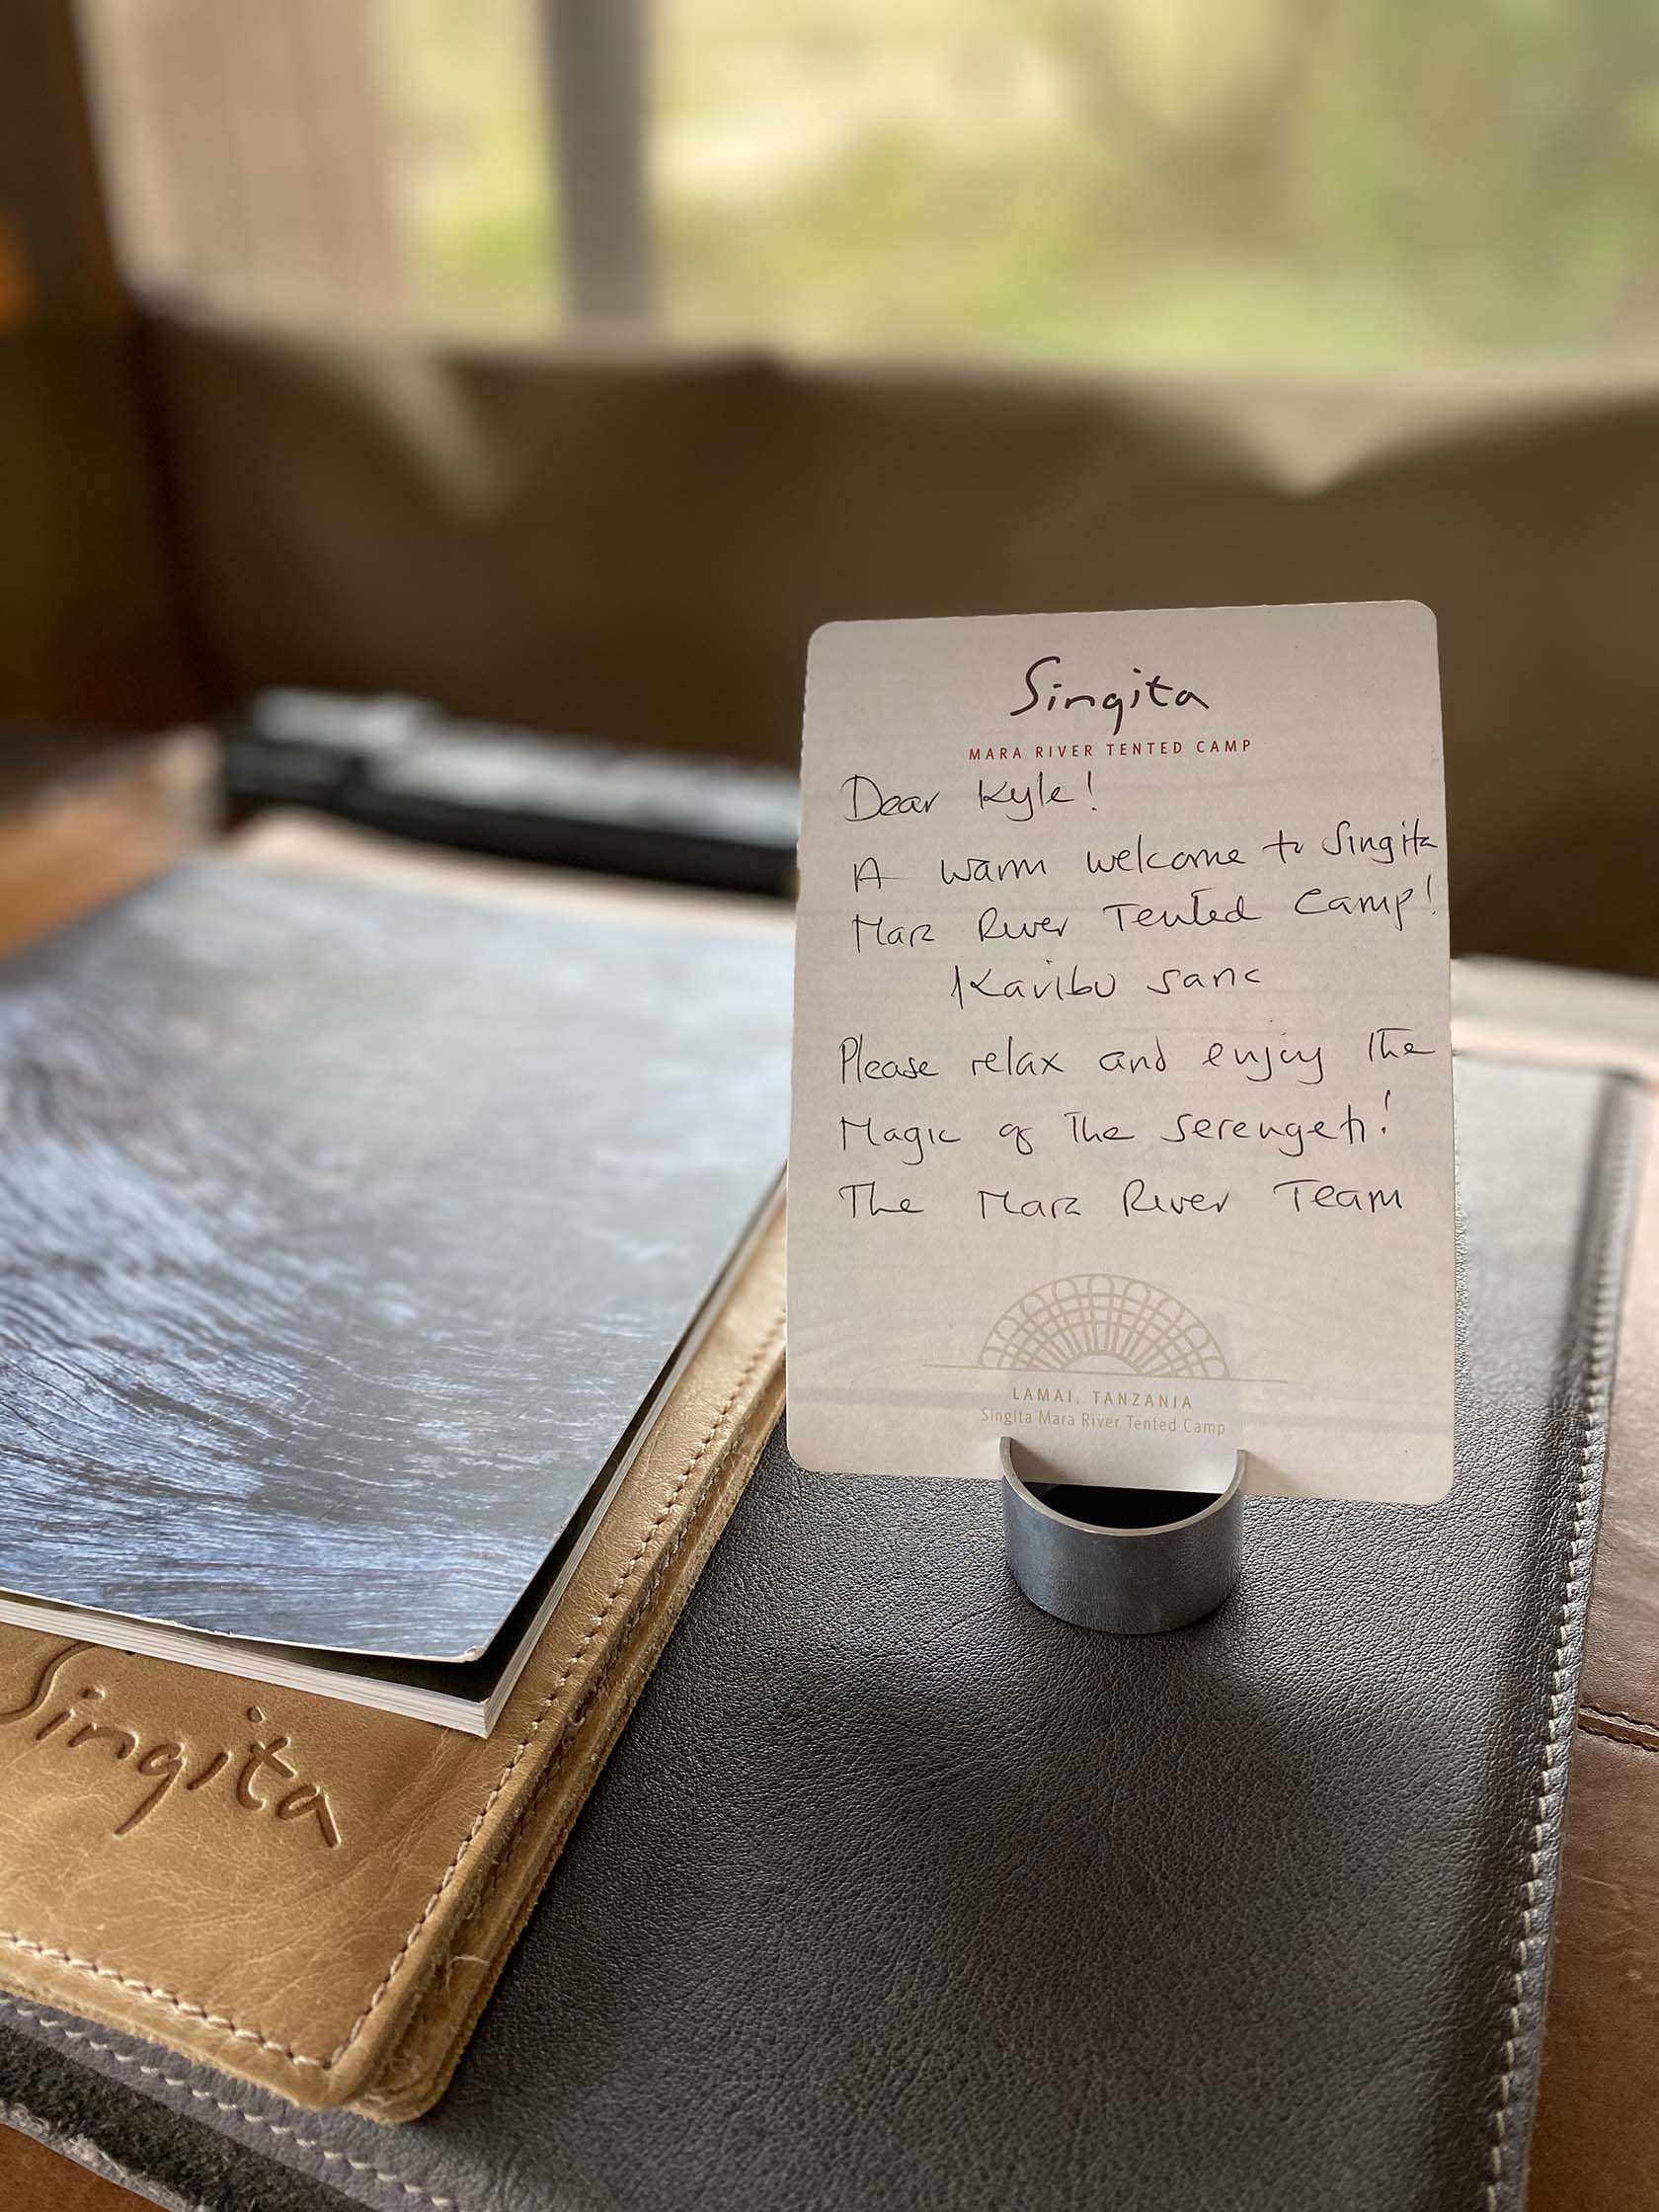 Singita
MARA RIVER TENTED CAMP
Dear Kyle!
A warm welcome to Singita
Mara River Tented Camp!
Karibu sana
Please relax and enjoy the
Magic of the Serengeti!
The Mara River Team
LAMAI, TANZANIA
Singita Mara River Tented Camp
Singita